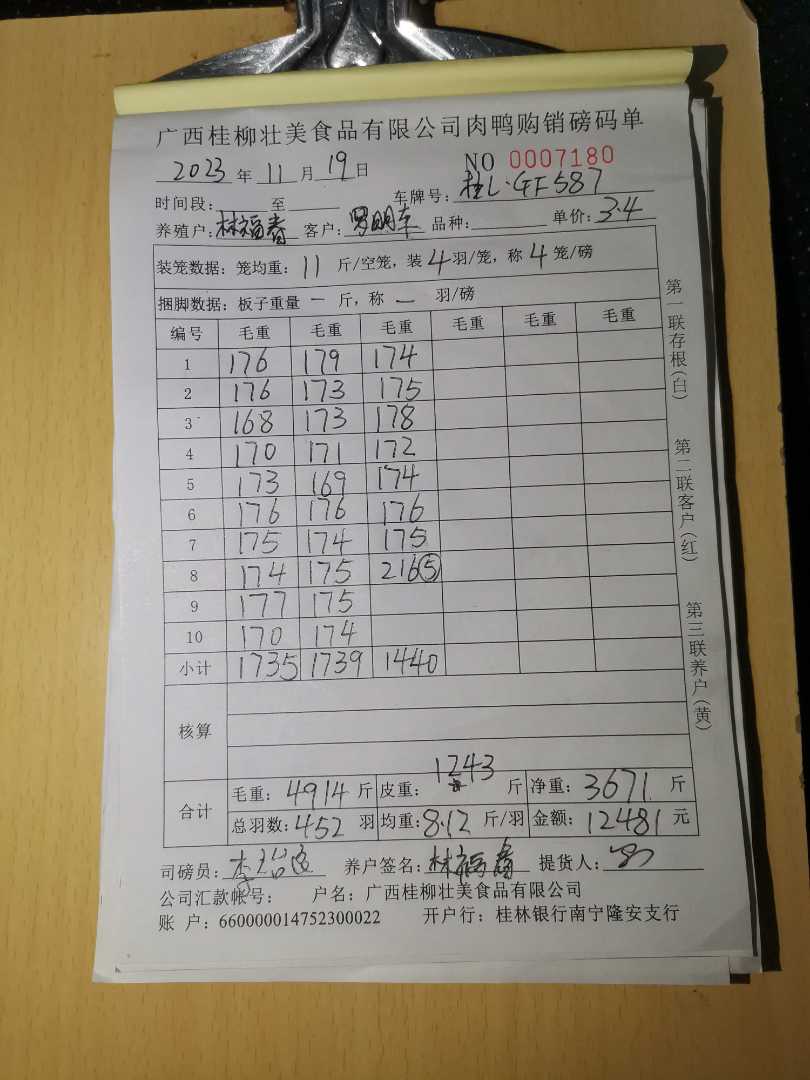 广西桂柳壮美食品有限公司肉鸭购销磅码单
2023 年 11 月 19 日 NO 0007180
时间段: 至 车牌号: 桂L·GF587
养殖户: 林福春 客户: 罗明车 品种: 单价: 3.4
装笼数据: 笼均重: 11 斤/空笼, 装 4 羽/笼, 称 4 笼/磅
捆脚数据: 板子重量 一 斤, 称 一 羽/磅
编号 毛重 毛重 毛重 毛重 毛重 毛重
1 176 179 174
2 176 173 175
3 168 173 178
4 170 171 172
5 173 169 174
6 176 176 176
7 175 174 175
8 174 175 216⑤
9 177 175
10 170 174
小计 1735 1739 1440
核算
合计 毛重: 4914 斤 皮重: 1243 斤 净重: 3671 斤
总羽数: 452 羽 均重: 8.12 斤/羽 金额: 12481 元
司磅员: 养户签名: 林福春 提货人:
公司汇款帐号: 户名: 广西桂柳壮美食品有限公司
账 户: 660000014752300022 开户行: 桂林银行南宁隆安支行
第一联存根(白) 第二联客户(红) 第三联养户(黄)